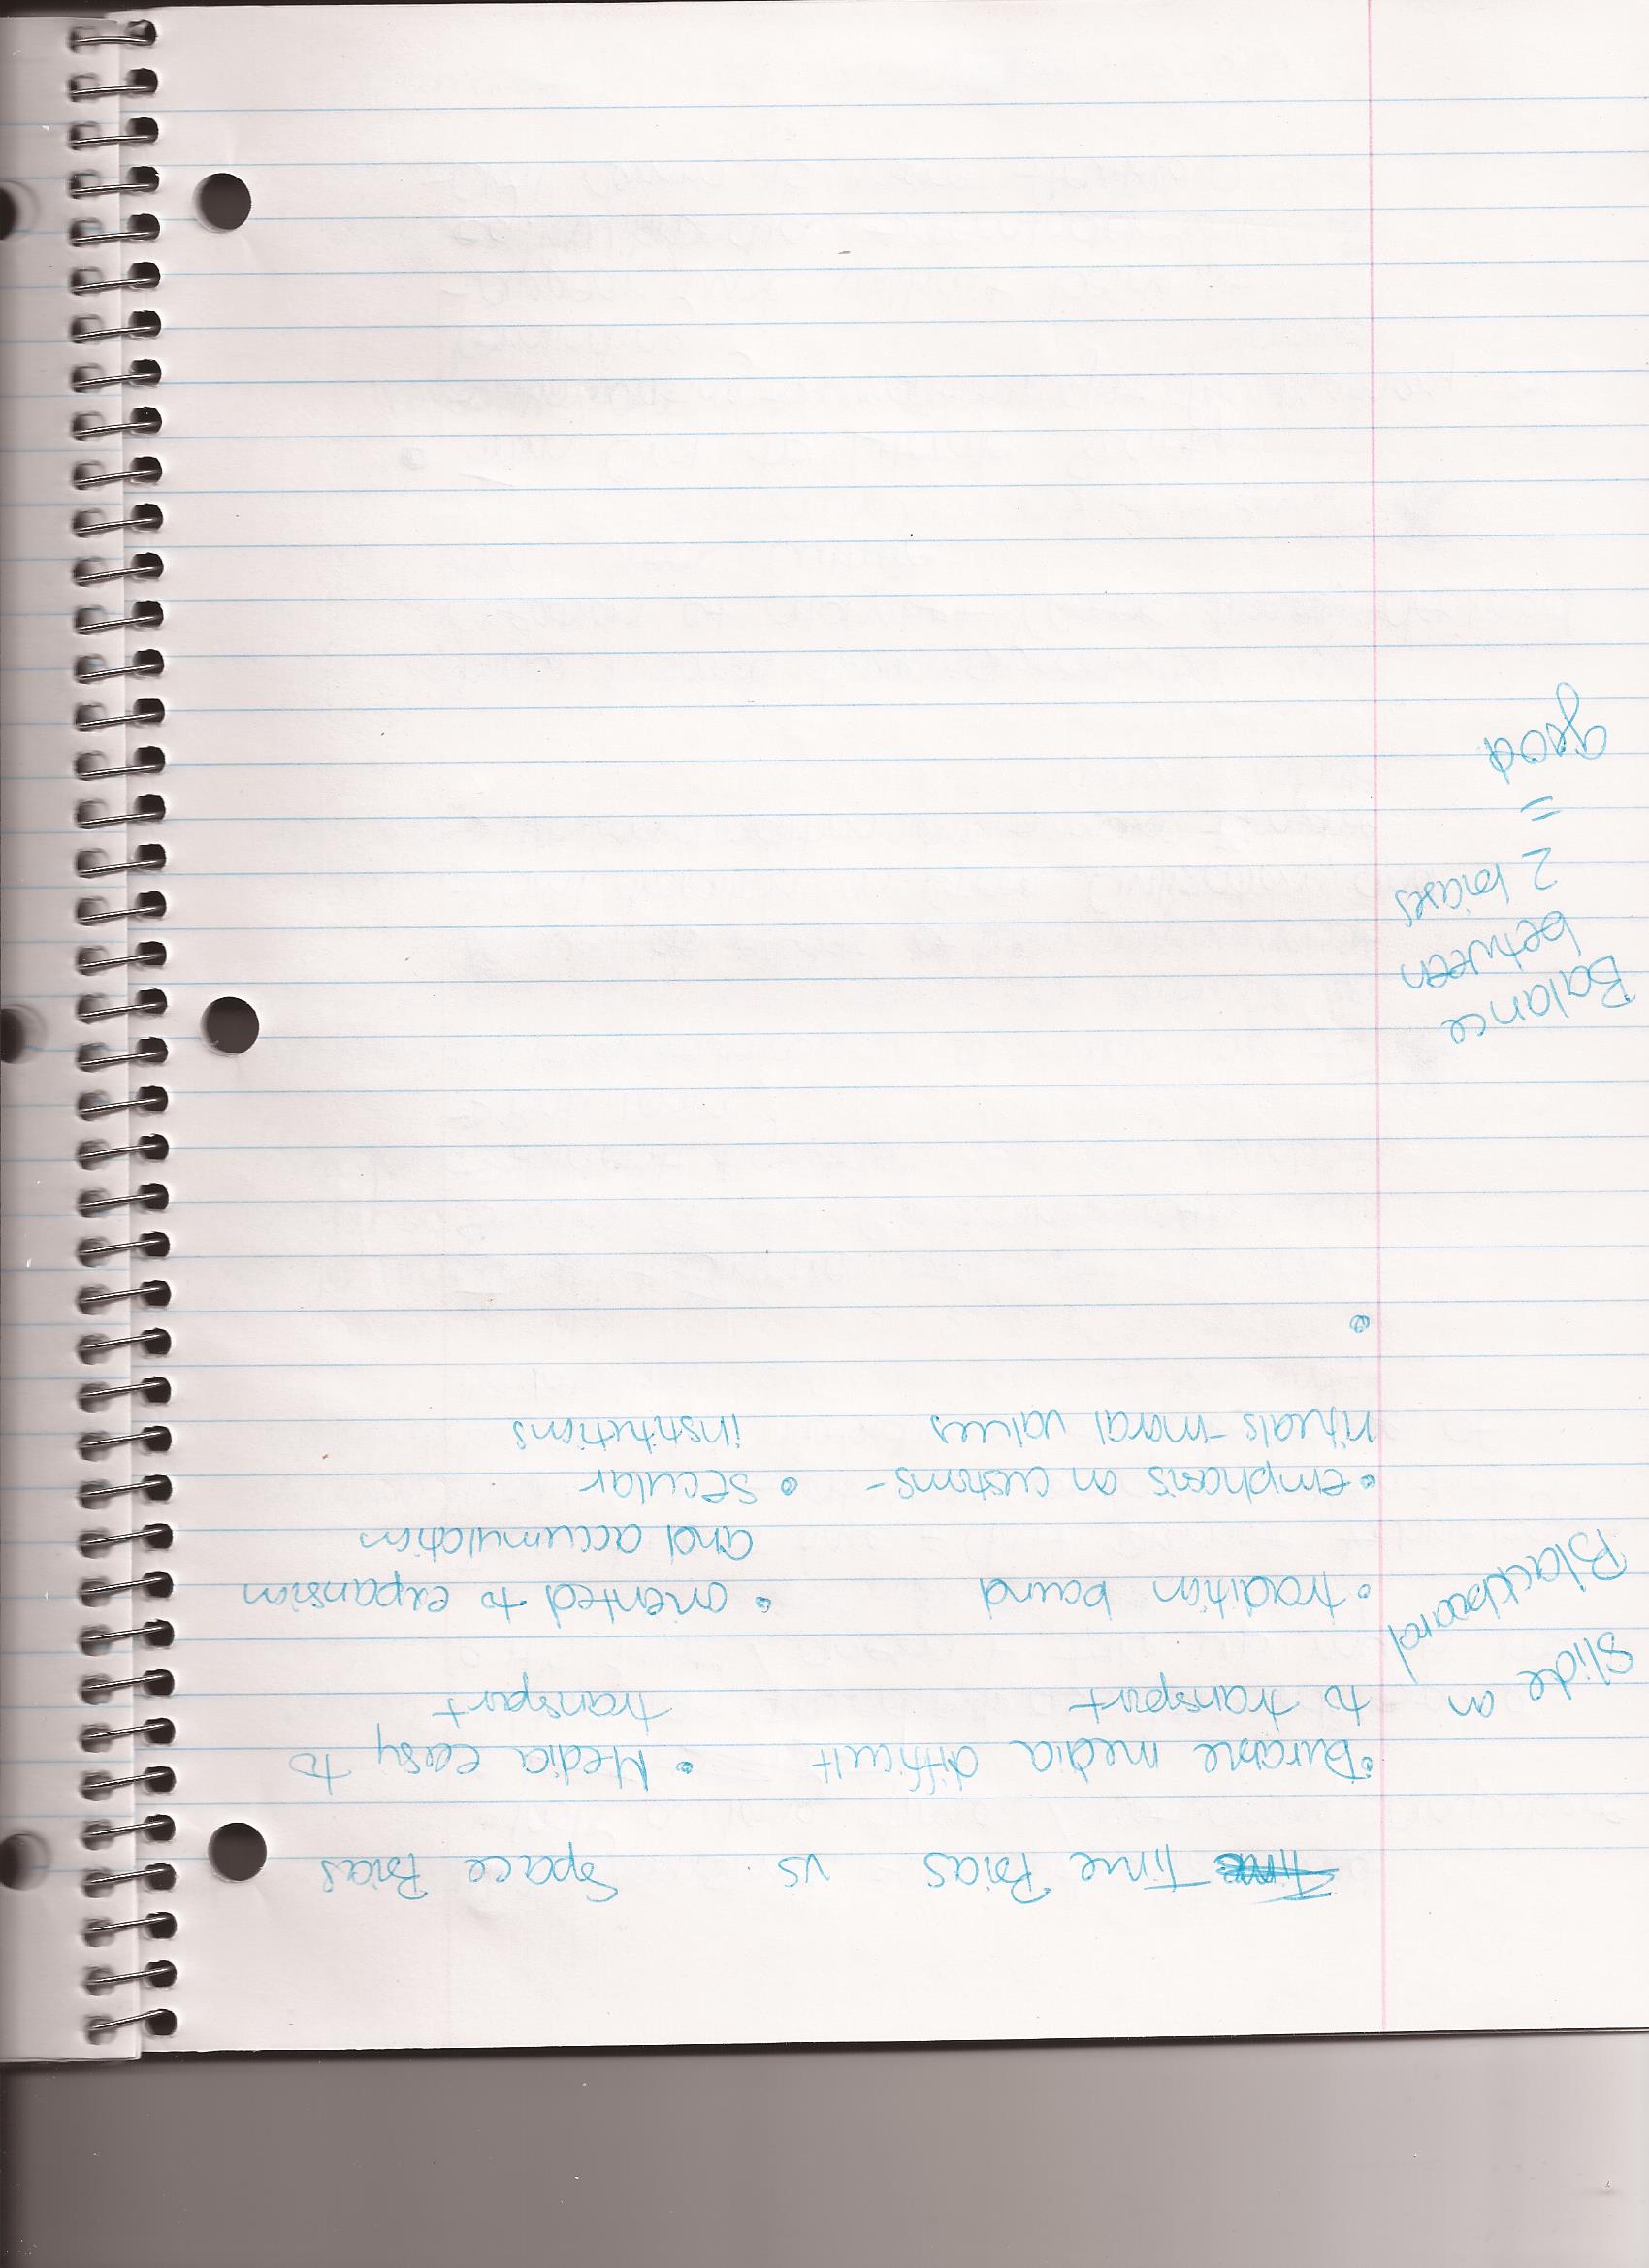 Time Bias vs Space Bias
• Durable media difficult • Media easy to
to transport transport
Slide on
Blackboard
• tradition bound • oriented to expansion
and accumulation
• emphasis on customs- • secular
rituals-moral values institutions
•
Balance
between
2 biases
=
good